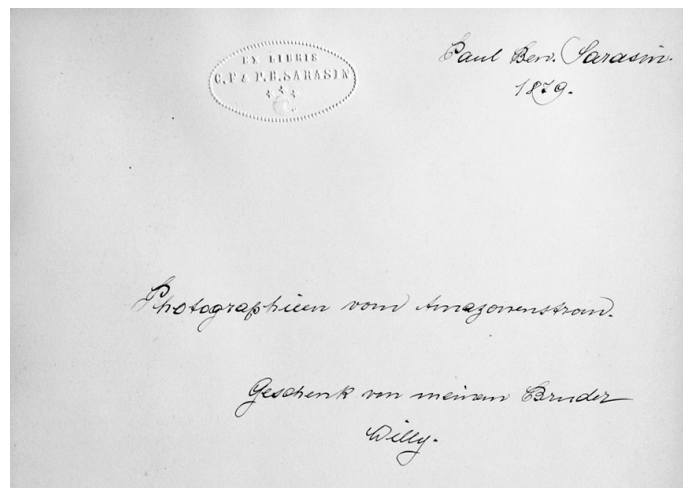 EX LIBRIS
C.F. & P.B. SARASIN
Paul Ben. Sarasin.
1879.
Photographieen vom Amazonenstrom.
Geschenk von meinem Bruder
Willy.